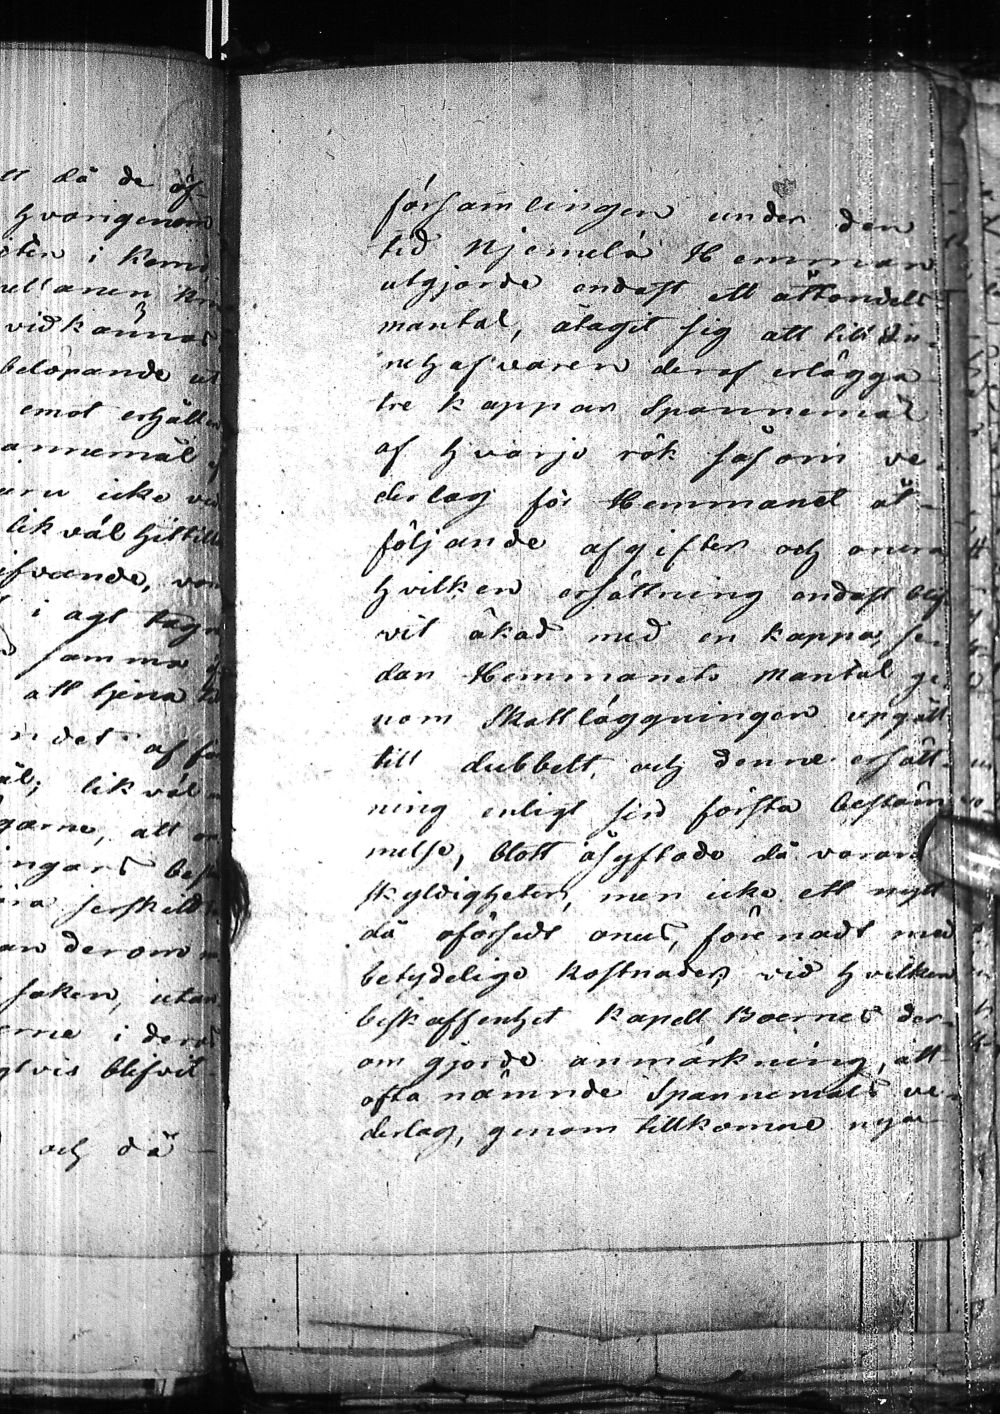 tt då de öf-
hvarigenom
i Kemi
vidkännas
belöpande ut
emot erhållen
annemål
icke
likväl hittills
ifvande,
i agt tagn
samma
att tjena
ndet af
likväl
garne, att
ingars
serskeldt
an derom
saken, utan
erne i deras
gtvis blifvit
och då
församlingen under den
tid Njemelä Hemman
utgjorde endast ett åttondels
mantal, åtagit sig att till In-
nehafvaren deraf erlägga
tre kappar Spannemål
af hvarje rök såsom ve-
derlag för Hemmanet åt-
följande afgifter och onera
hvilken ersättning endast blif
vit ökad med en kappa, se-
dan Hemmanets mantal ge-
nom Skattläggningen upgått
till dubbelt, och denne ersätt-
ning enligt sin första bestäm
melse, blott åsyftade då varan
skyldigheter, men icke ett nytt
då oförsedt onus, förenadt med
betydelige kostnader, vid hvilken
beskaffenhet Kapell Boernes der-
om gjorde anmärkning, att
ofta nämnde Spannemåls ve-
derlag, genom tillkomne nya